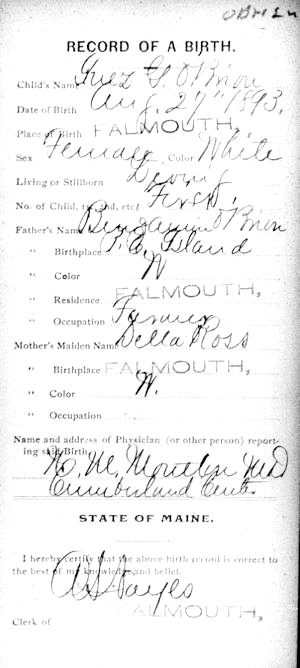 OBRIEN
RECORD OF A BIRTH.
Child's Name Inez G. O'Brion
Date of Birth Aug. 27" 1893.
Place of Birth FALMOUTH,
Sex Female, Color White
Living or Stillborn Living
No. of Child, 1st, 2nd, etc. First
Father's Name Benjamin O'Brion
" Birthplace P. E. Island
" Color W
" Residence FALMOUTH,
" Occupation Farmer
Mother's Maiden Name Della Ross
" Birthplace FALMOUTH,
" Color W.
" Occupation
Name and address of Physician (or other person) report-
ing said Birth
M.D
Cumberland Center
STATE OF MAINE.
I hereby certify that the above birth record is correct to
the best of my knowledge and belief.
Hayes
Clerk of FALMOUTH,